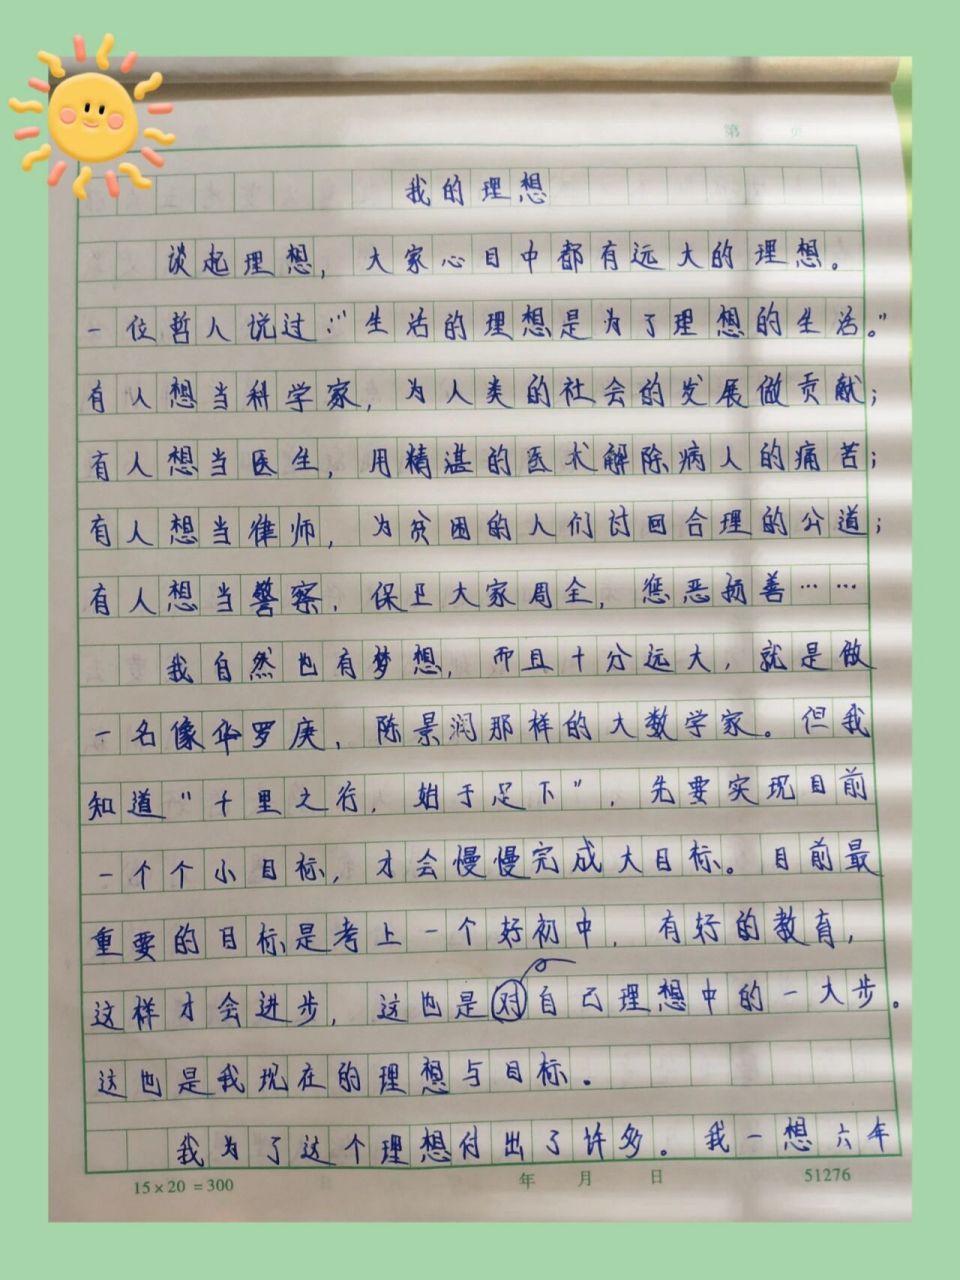 第 页
我的理想
谈起理想，大家心目中都有远大的理想。
一位哲人说过："生活的理想是为了理想的生活。"
有人想当科学家，为人类的社会的发展做贡献；
有人想当医生，用精湛的医术解除病人的痛苦；
有人想当律师，为贫困的人们讨回合理的公道；
有人想当警察，保卫大家周全，惩恶扬善……
我自然也有梦想，而且十分远大，就是做
一名像华罗庚，陈景润那样的大数学家。但我
知道"千里之行，始于足下"，先要实现目前
一个个小目标，才会慢慢完成大目标。目前最
重要的目标是考上一个好初中，有好的教育，
这样才会进步，这也是对自己理想中的一大步。
这也是我现在的理想与目标。
我为了这个理想付出了许多。我一想六年
15×20=300 年 月 日 51276